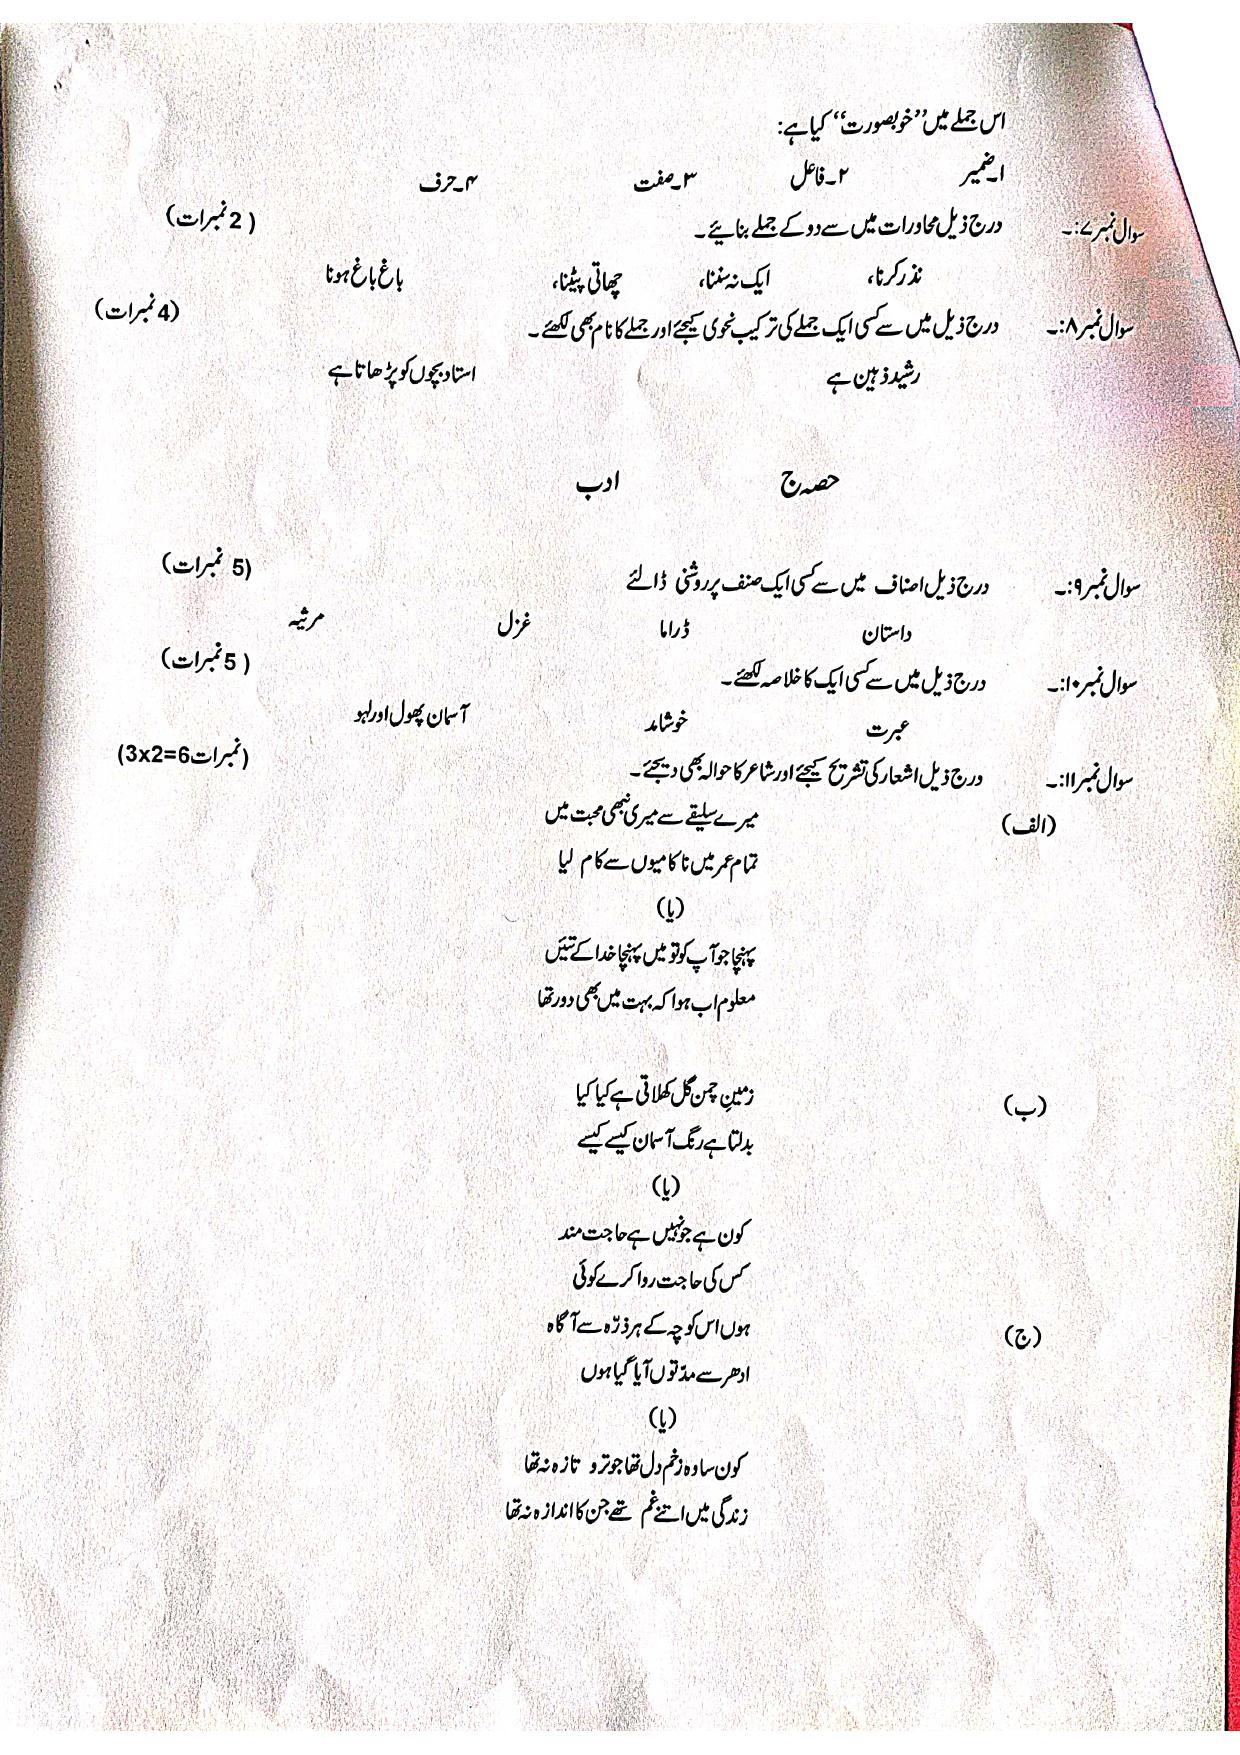 اس جملے میں ”خوبصورت“ کیا ہے:
۱۔ضمیر ۲۔فاعل ۳۔صفت ۴۔حرف
سوال نمبر ۷:۔ درج ذیل محاورات میں سے دو کے جملے بنایئے۔ (2 نمبرات)
نذر کرنا، ایک نہ سننا، چھاتی پیٹنا، باغ باغ ہونا
سوال نمبر ۸:۔ درج ذیل میں سے کسی ایک جملے کی ترکیب نحوی کیجئے اور جملے کا نام بھی لکھئے۔ (4 نمبرات)
رشید ذہین ہے استاد بچوں کو پڑھاتا ہے
حصہ ج ادب
سوال نمبر ۹:۔ درج ذیل اصناف میں سے کسی ایک صنف پر روشنی ڈالئے (5 نمبرات)
داستان ڈراما غزل مرثیہ
سوال نمبر ۱۰:۔ درج ذیل میں سے کسی ایک کا خلاصہ لکھئے۔ (5 نمبرات)
عبرت خوشامد آسمان پھول اور لہو
سوال نمبر ۱۱:۔ درج ذیل اشعار کی تشریح کیجئے اور شاعر کا حوالہ بھی دیجئے۔ (3x2=6 نمبرات)
(الف) میرے سلیقے سے میری نبھی محبت میں
تمام عمر میں ناکامیوں سے کام لیا
(یا)
پہنچا جو آپ کو تو میں پہنچا خدا کے تئیں
معلوم اب ہوا کہ بہت میں بھی دور تھا
(ب) زمینِ چمن گل کھلاتی ہے کیا کیا
بدلتا ہے رنگ آسمان کیسے کیسے
(یا)
کون ہے جو نہیں ہے حاجت مند
کس کی حاجت روا کرے کوئی
(ج) ہوں اس کوچہ کے ہر ذرّہ سے آگاہ
ادھر سے مدّتوں آیا گیا ہوں
(یا)
کون سا وہ زخم دل تھا جو تر و تازہ نہ تھا
زندگی میں اتنے غم تھے جن کا اندازہ نہ تھا